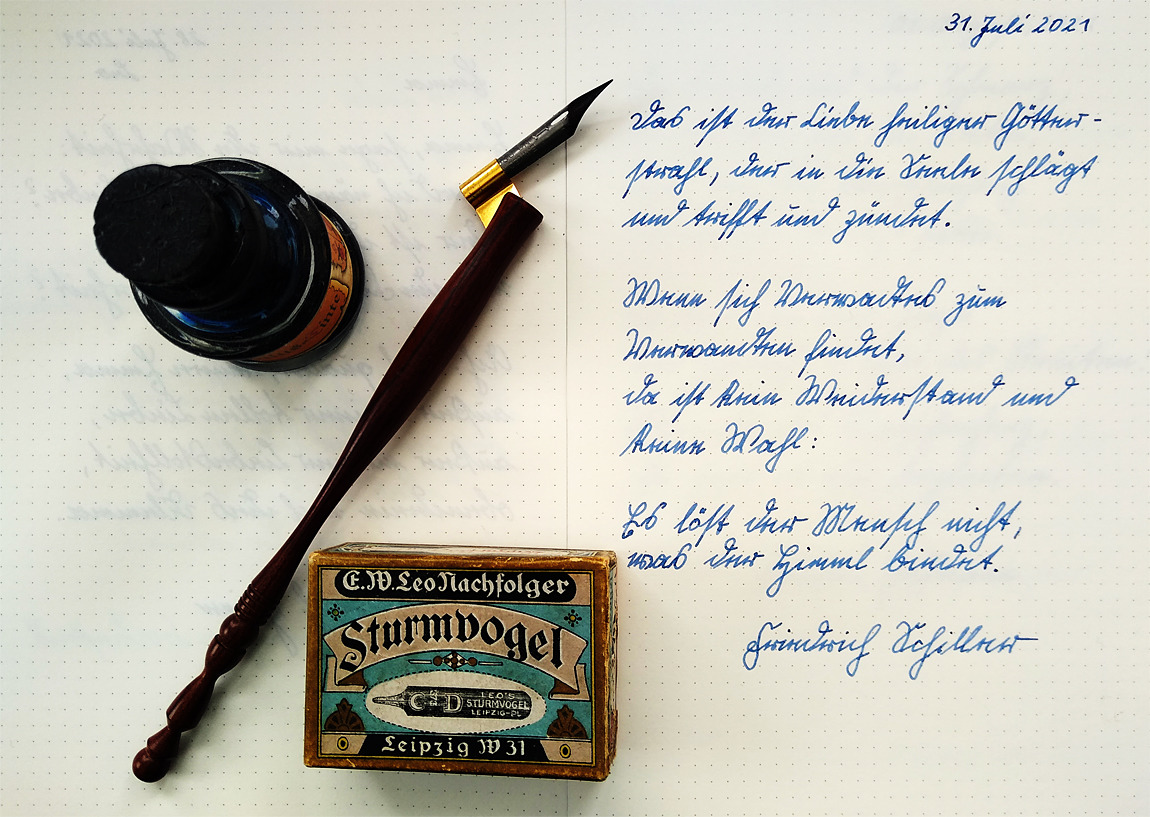 31. Juli 2021
Das ist der Liebe heiliger Götter-
strahl, der in die Seele schlägt
und trifft und zündet.
Wenn sich Verwadtes zum
Verwandten findet,
da ist kein Weiderstand und
keine Wahl:
Es löst der Mensch nicht,
was der Himmel bindet.
Friedrich Schiller
E.W. Leo Nachfolger
Sturmvogel
LEO'S
STURMVOGEL
LEIPZIG-PL
Leipzig W 31